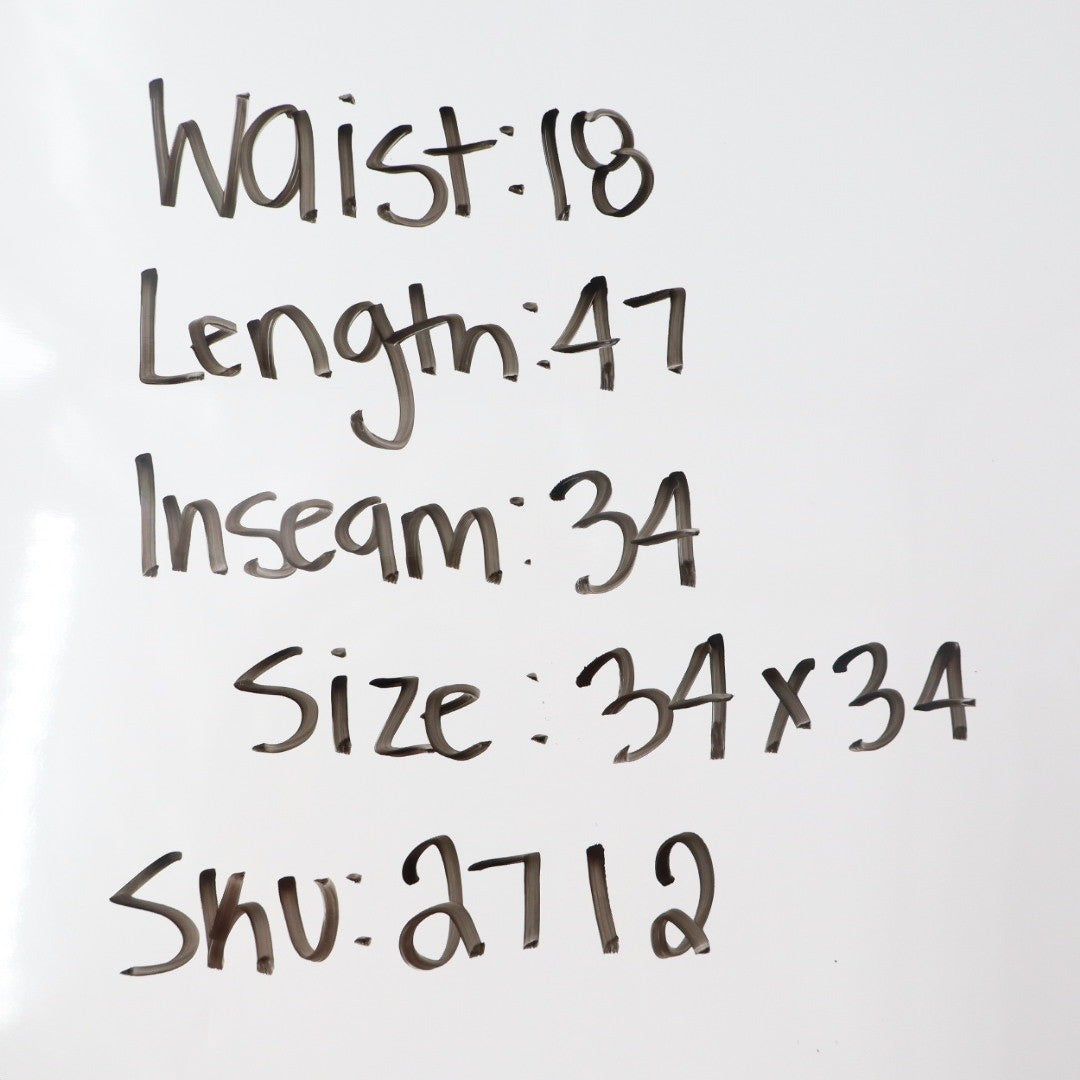 Waist: 18
Length: 47
Inseam: 34
Size: 34x34
Sku: 2712